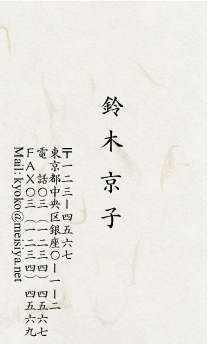 鈴木京子
〒一二三ー四五六七
東京都中央区銀座〇ー一ー二
電話〇三(一二三四)四五六七
FAX〇三(一二三四)四五六九
Mail: kyoko@meisiya.net